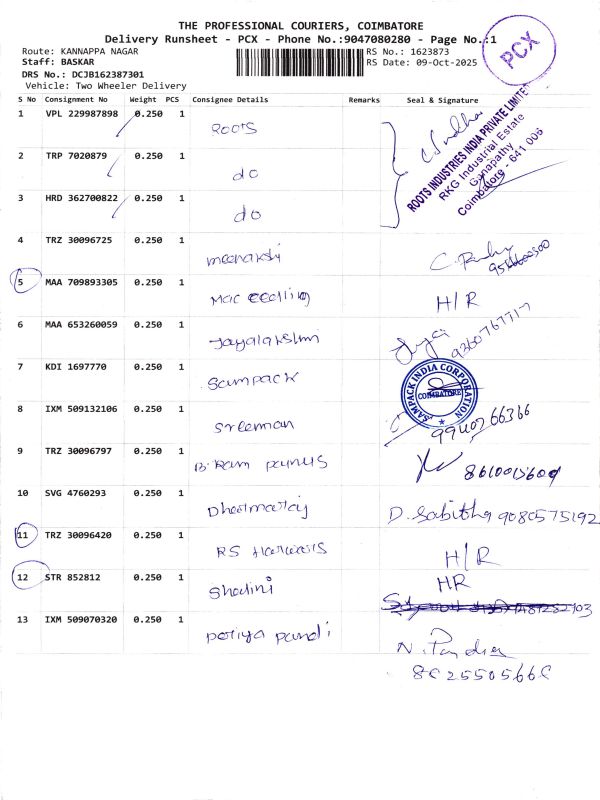 THE PROFESSIONAL COURIERS, COIMBATORE
Delivery Runsheet - PCX - Phone No.:9047080280 - Page No.:1
PCX
Route: KANNAPPA NAGAR
RS No.: 1623873
Staff: BASKAR
RS Date: 09-Oct-2025
DRS No.: DCJB162387301
Vehicle: Two Wheeler Delivery
S No Consignment No Weight PCS Consignee Details Remarks Seal & Signature
1 VPL 229987898 0.250 1 ROOTS
ROOTS INDUSTRIES INDIA PRIVATE LIMITED
RKG Industrial Estate
Ganapathy
Coimbatore - 641 006
2 TRP 7020879 0.250 1 do
3 HRD 362700822 0.250 1 do
4 TRZ 30096725 0.250 1 meenakshi
5 MAA 709893305 0.250 1 H/R
6 MAA 653260059 0.250 1 Jayalakshmi
9360767717
7 KDI 1697770 0.250 1 Sampack
SAMPACK INDIA CORPORATION
COIMBATORE
8 IXM 509132106 0.250 1 Sreeman
9940766366
9 TRZ 30096797 0.250 1 8610015609
10 SVG 4760293 0.250 1 D. Sabitha 9080575192
11 TRZ 30096420 0.250 1 RS H/R
12 STR 852812 0.250 1 Shalini HR
13 IXM 509070320 0.250 1 periya pandi
N. Pandia